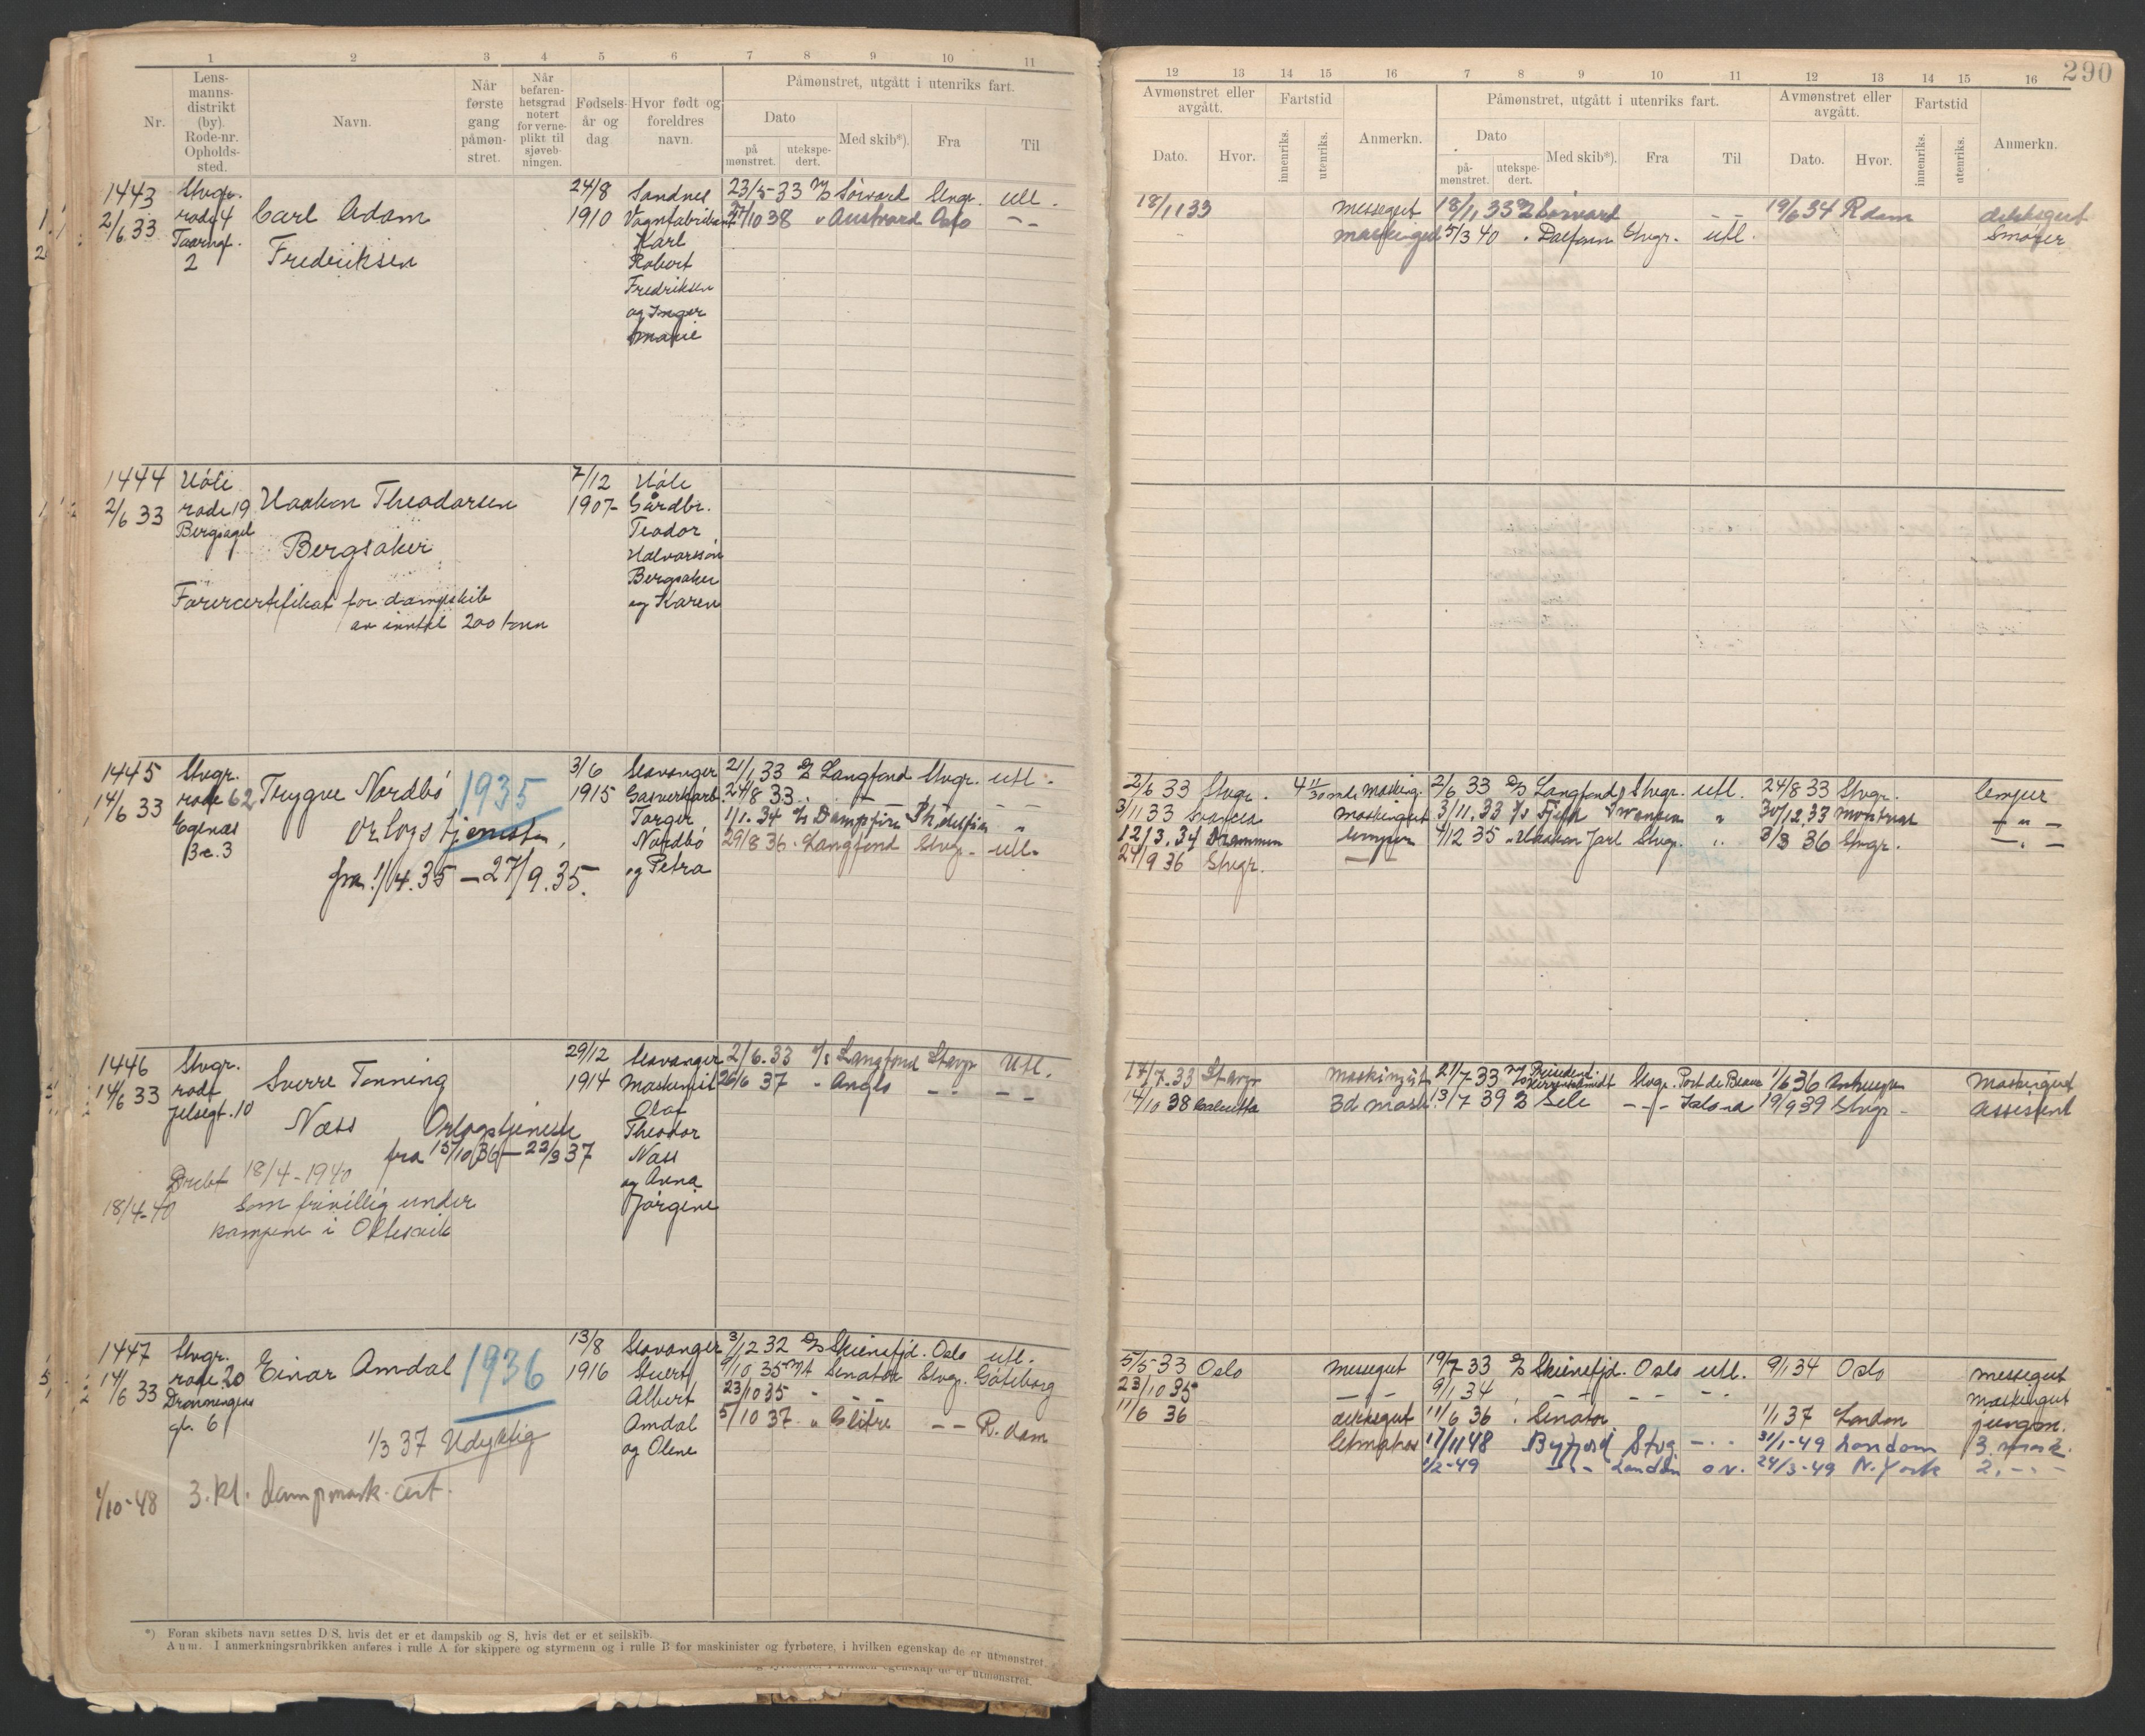 290
1 2 3 4 5 6 7 8 9 10 11
Nr.
Lens-
manns-
distrikt
(by).
Rode-nr.
Opholds-
sted.
Navn.
Når
første
gang
påmøn-
stret.
Når
befaren-
hetsgrad
notert
for verne-
plikt til
sjøveb-
ningen.
Fødsels-
år og
dag
Hvor født og
foreldres
navn.
Påmønstret, utgått i utenriks fart.
Dato
på
mønstret.
utekspe-
dert.
Med skib*).
Fra
Til
12 13 14 15 16 7 8 9 10 11 12 13 14 15 16
Avmønstret eller
avgått.
Fartstid
Dato.
Hvor.
innenriks.
utenriks.
Anmerkn.
Påmønstret, utgått i utenriks fart.
Dato
på-
mønstret.
utekspe-
dert.
Med skib*).
Fra
Til
Avmønstret eller
avgått.
Fartstid
Dato.
Hvor.
innenriks.
utenriks.
Anmerkn.
1443
2/6 33
Stvgr.
rode 4
2
Carl Adam
Fredriksen
24/8
1910
Sandnes
Vognfabrikant
Karl
Robert
Fredriksen
og Inger
Marie
23/5-33 Sørvard Stvgr. utl.
27/10 38 " Austvard Oslo - -
18/1 33 messegut 18/1 33 Sørvard - - 19/6 34 R.dam dekksgut
maskingut 5/3 40 . Dalfonn Stvgr. utl. Smører
1444
2/6 33
Høle
rode 19
Bergsagel
Haakon Theodorsen
Bergsaker
Førercertifikat for dampskib
av inntil 200 tonn
7/12
1907
Høle
Gårdbr.
Teodor
Halvorsen
Bergsaker
og Karen
1445
14/6 33
Stvgr.
rode 62
Egenæs
3
Trygve Nordbø 1935
Orlogstjeneste
fra 1/4.35 — 27/9.35.
3/6
1915
Stavanger
Gasverkarb.
Torger
Nordbø
og Petra
2/1 33 D/S Langfond Stvgr. utl.
24/8 33 — — —
1/1. 34 Dampfire Ph.delfia "
29/8 36 . Langfond Stvgr. utl.
2/6 33 Stvgr. 4 mdr. Masking. 2/6 33 D/S Langfond Stvgr. utl. 24/8 33 Stvgr. lemper
3/11 33 Swansea Maskingut 3/11.33 Swansea " 30/12.33 Montreal — " —
12/3.34 Drammen lemper 4/12 35 " Haakon Jarl Stvgr. " 3/3 36 Stvgr. — . —
24/9 36 Stvgr. — —
1446
14/6 33
Stvgr.
rode
Jelsegt. 10
Sverre Tonning
Næss Orlogstjeneste
fra 15/10 36 — 22/3 37
Drebt 18/4-1940
18/4-40 Som frivillig under
kampene i Oltesvik
29/12
1914
Stavanger
Maskinist
Olaf
Theodor
Næss
og Anna
Jørgine
2/6.33 Langfond Stavgr. Utl.
26/6 37 " Anglo — . — —
17/7.33 Stavgr maskingut 21/7 33 Stvgr. Port de Bouc 1/6 36 Maskingut
14/10 38 Calcutta 3d mask. 13/7 39 Sele — — 19/9 39 Stvgr — assistent
1447
14/6 33
Stvgr.
rode 20
Dronningens
gt. 6
Einar Amdal 1936
1/3 37 Udyktig
1/10-48 3. kl. dampmask. cert.
13/8
1916
Stavanger
Stuert
Albert
Amdal
og Oline
3/12 32 D/S Skiensfjd. Oslo utl.
9/10 35 M/S Senator Stvgr. Göteborg
23/10 35 - - -
5/10 37 " Glitre — — R.dam
5/5 33 Oslo Messegut 19/7 33 D/S Skiensfjd. Oslo utl. 9/1 34 Oslo messegut
23/10 35 — — 9/1 34 - - - - maskingut
11/6 36 dekksgut 11/6 36 . Senator 1/1 37 London jungm.
letmatros 17/11 48 Byfjord Stvg — 31/1-49 London 3. mask.
1/2-49 — — London o.v. 24/3-49 N. York 2. — —
*) Foran skibets navn settes D/S, hvis det er et dampskib og S, hvis det er et seilskib.
Anm. I anmerkningsrubrikken anføres i rulle A for skippere og styrmenn og i rulle B for maskinister og fyrbøtere, i hvilken egenskap de er utmønstret.